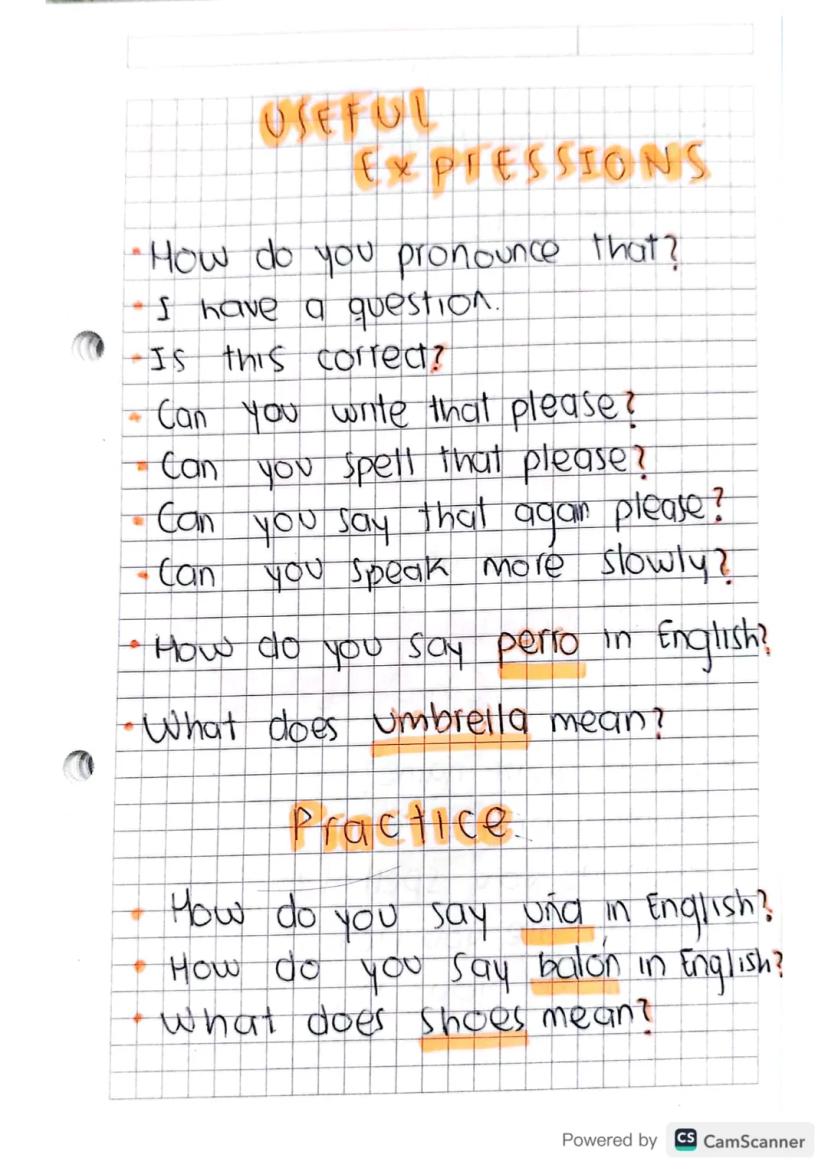 USEFUL
EXPRESSIONS
· How do you pronounce that?
· I have a question.
· Is this correct?
· Can you write that please?
· Can you spell that please?
· Can you say that agan please?
· Can you speak more slowly?
· How do you say perro in English?
· What does umbrella mean?
Practice.
· How do you say uña in English?
· How do you say balón in English?
· What does shoes mean?
Powered by CS CamScanner